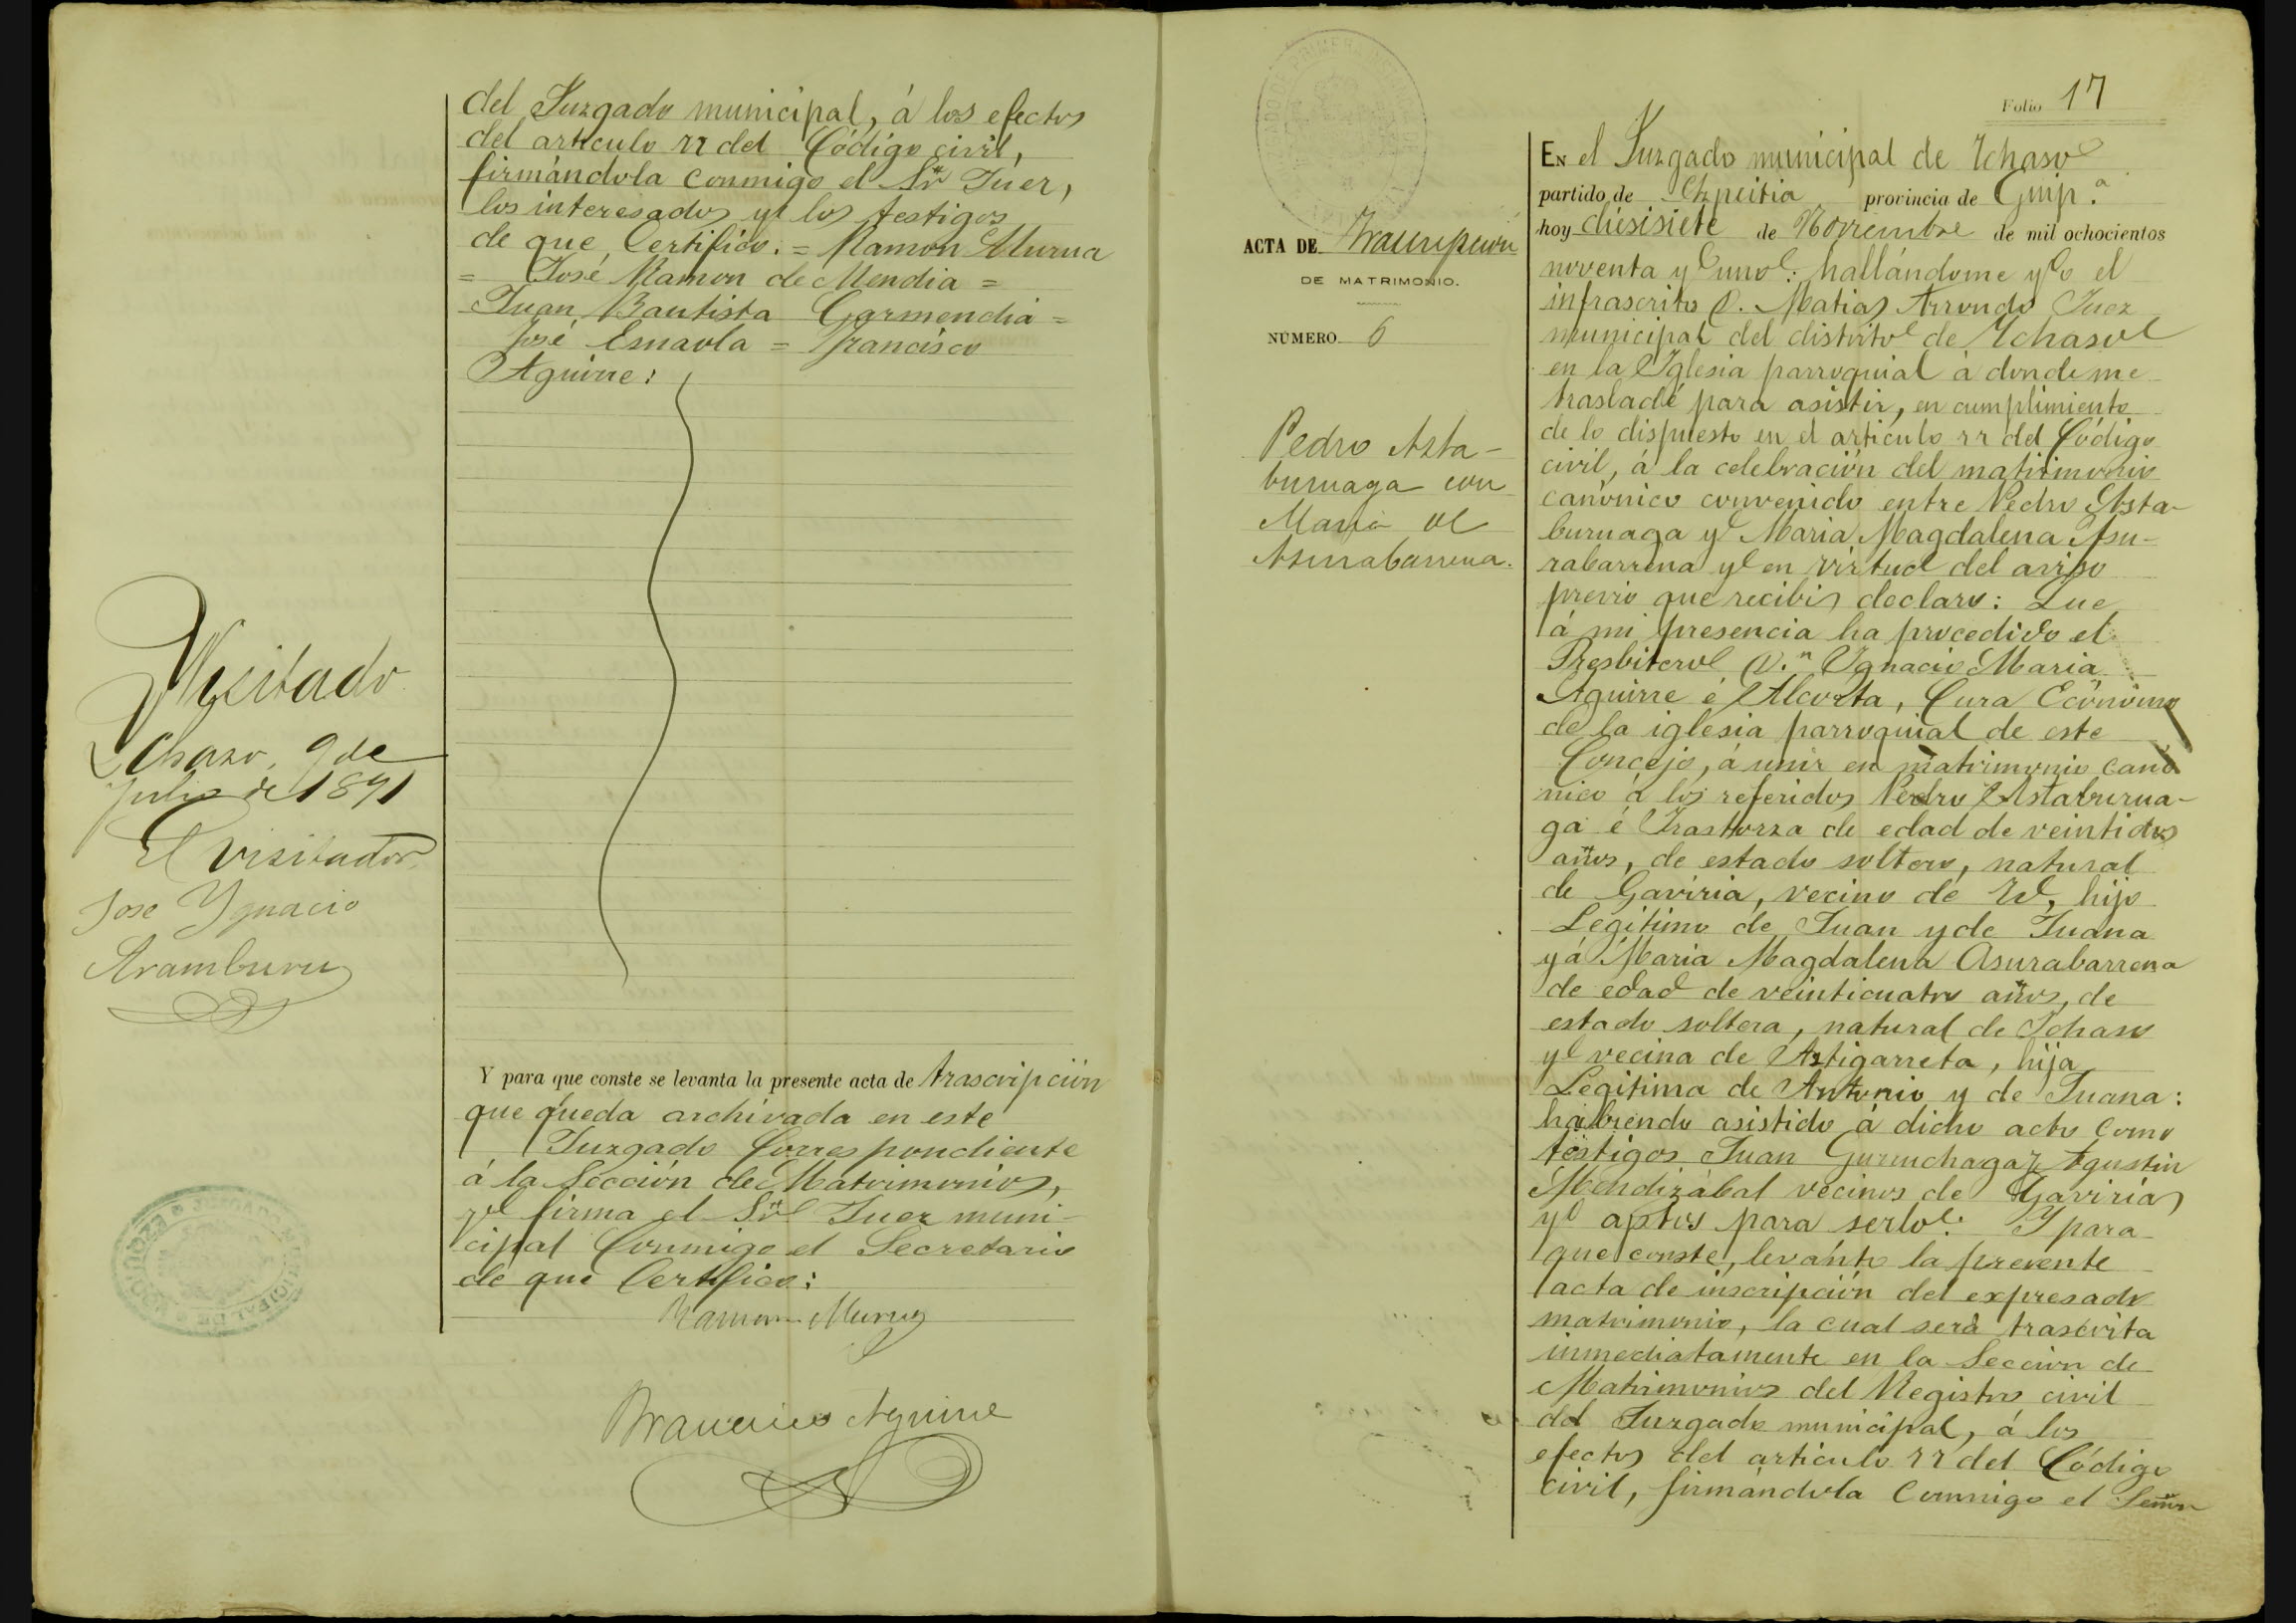 del Juzgado municipal, á los efectos
del articulo 77 del Código civil,
firmándola conmigo el Sr. Juez,
los interesados y los testigos
de que Certifico. = Ramon Murua
= José Ramon de Mendia =
Juan Bautista Garmendia =
José Esnaola = Francisco
Aguirre:
Visitado
Ychaso, 9 de
Julio de 1891
El visitador
Jose Ygnacio
Aramburu
Y para que conste se levanta la presente acta de trascripción
que queda archivada en este
Juzgado Correspondiente
á la Sección de Matrimonios,
y firma el Sr. Juez muni-
cipal Conmigo el Secretario
de que Certifico:
Ramon Murua
Francisco Aguirre
Folio 17
ACTA DE Trascripcion
DE MATRIMONIO.
NÚMERO 6
Pedro Asta-
buruaga con
Maria M
Asurabarrena.
EN el Juzgado municipal de Ychaso
partido de Azpeitia provincia de Guip.ª
hoy diesisiete de Noviembre de mil ochocientos
noventa y uno: hallándome yo el
infrascrito D. Matias Arrondo Juez
municipal del distrito de Ychaso
en la Yglesia parroquial á donde me
trasladé para asistir, en cumplimiento
de lo dispuesto en el artículo 77 del Código
civil, á la celebración del matrimonio
canónico convenido entre Pedro Asta-
buruaga y Maria Magdalena Asu-
rabarrena y en virtud del aviso
previo que recibis declaro: Que
á mi presencia ha procedido el
Presbitero D.n Ygnacio Maria
Aguirre é Alcorta, Cura Ecónomo
de la iglesia parroquial de este
Concejo, á unir en matrimonio canó
nico á los referidos Pedro Astaburua-
ga é Irastorza de edad de veintidos
años, de estado soltero, natural
de Gaviria, vecino de Id, hijo
Legitimo de Juan y de Juana
y á Maria Magdalena Asurabarrena
de edad de veinticuatro años, de
estado soltera, natural de Ychaso
y vecina de Astigarreta, hija
Legitima de Antonio y de Juana:
habiendo asistido á dicho acto como
testigos Juan Guruchaga y Agustin
Mendizábal vecinos de Gaviria
y aptos para serlo. Y para
que conste, levanto la presente
acta de inscripción del expresado
matrimonio, la cual será trascrita
inmediatamente en la Sección de
Matrimonios del Registro civil
del Juzgado municipal, á los
efectos del articulo 77 del Código
civil, firmándola Conmigo el Señor